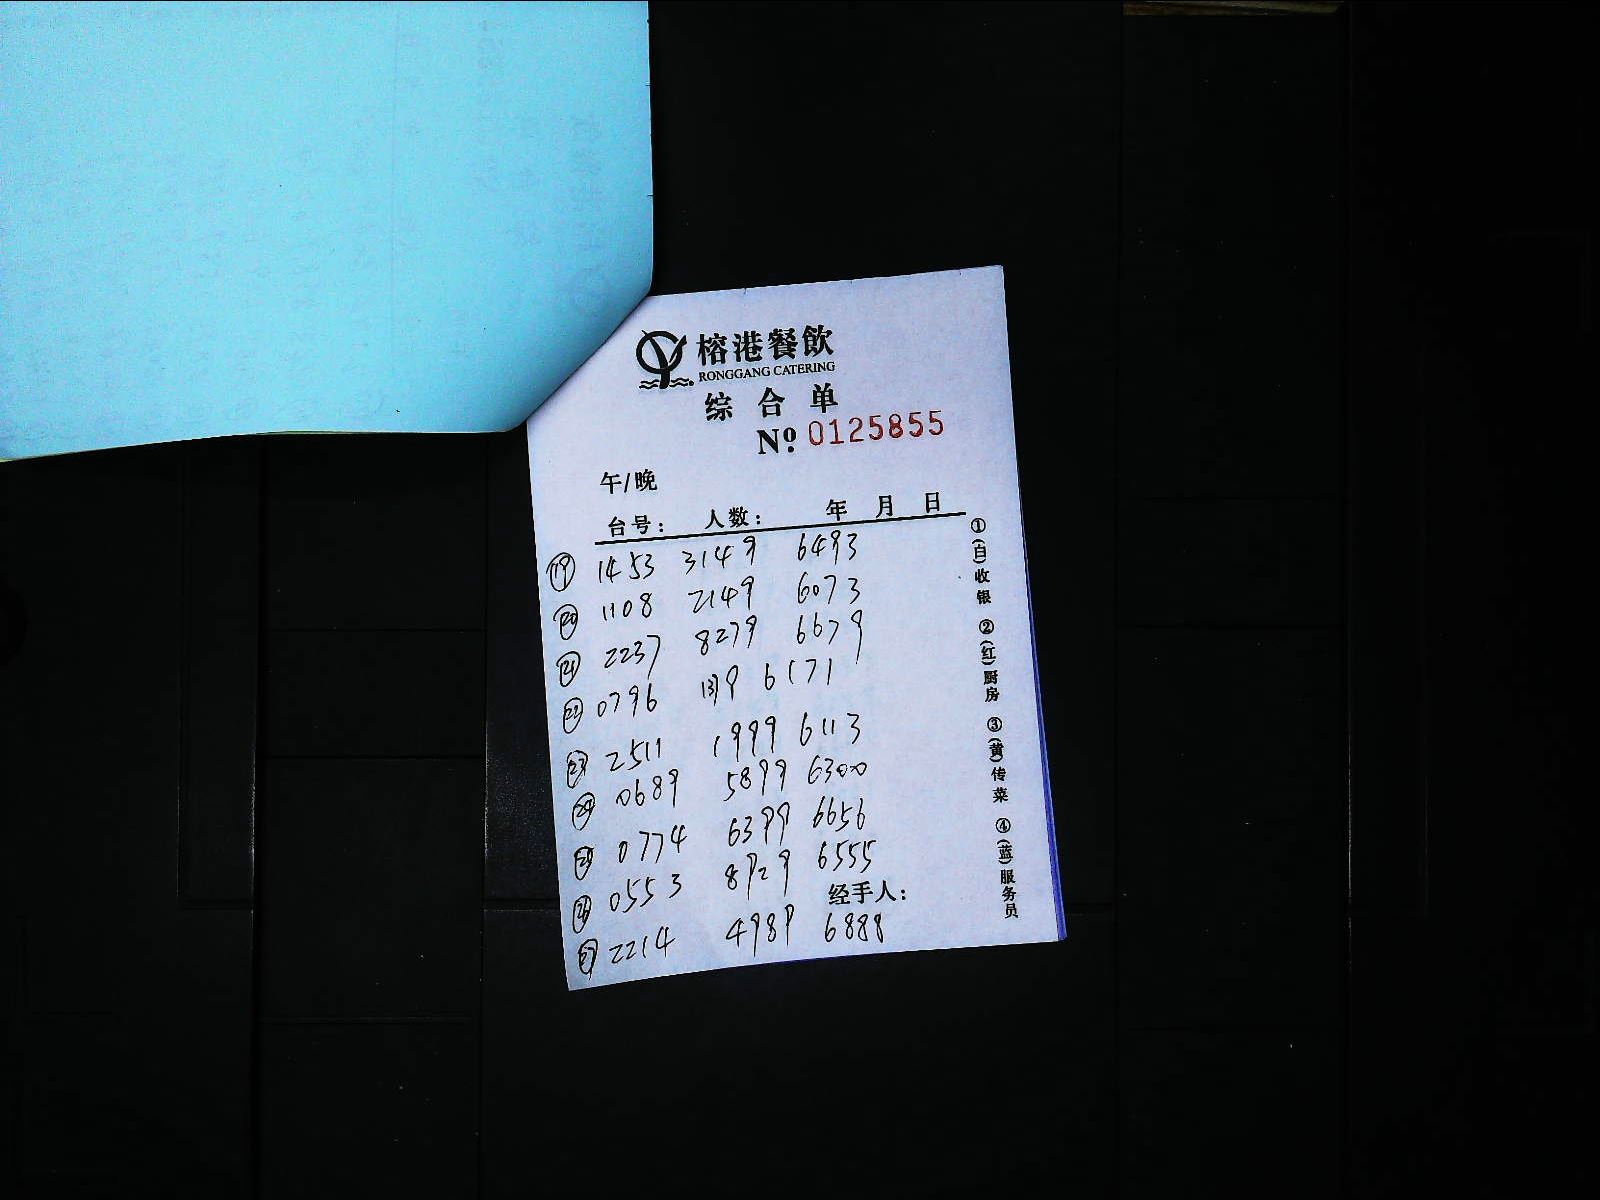 榕港餐飲
RONGGANG CATERING
综合单
Nº 0125855
午/晚
台号: 人数: 年 月 日
⑲ 1453 3149 6493
⑳ 1108 2149 6073
㉑ 2237 8279 6679
㉒ 0796 139 6171
㉓ 2511 1999 6113
㉔ 0689 5899 6300
㉕ 0774 6399 6656
㉖ 0553 8929 6555
经手人:
㉗ 2214 4989 6888
①(白)收银 ②(红)厨房 ③(黄)传菜 ④(蓝)服务员